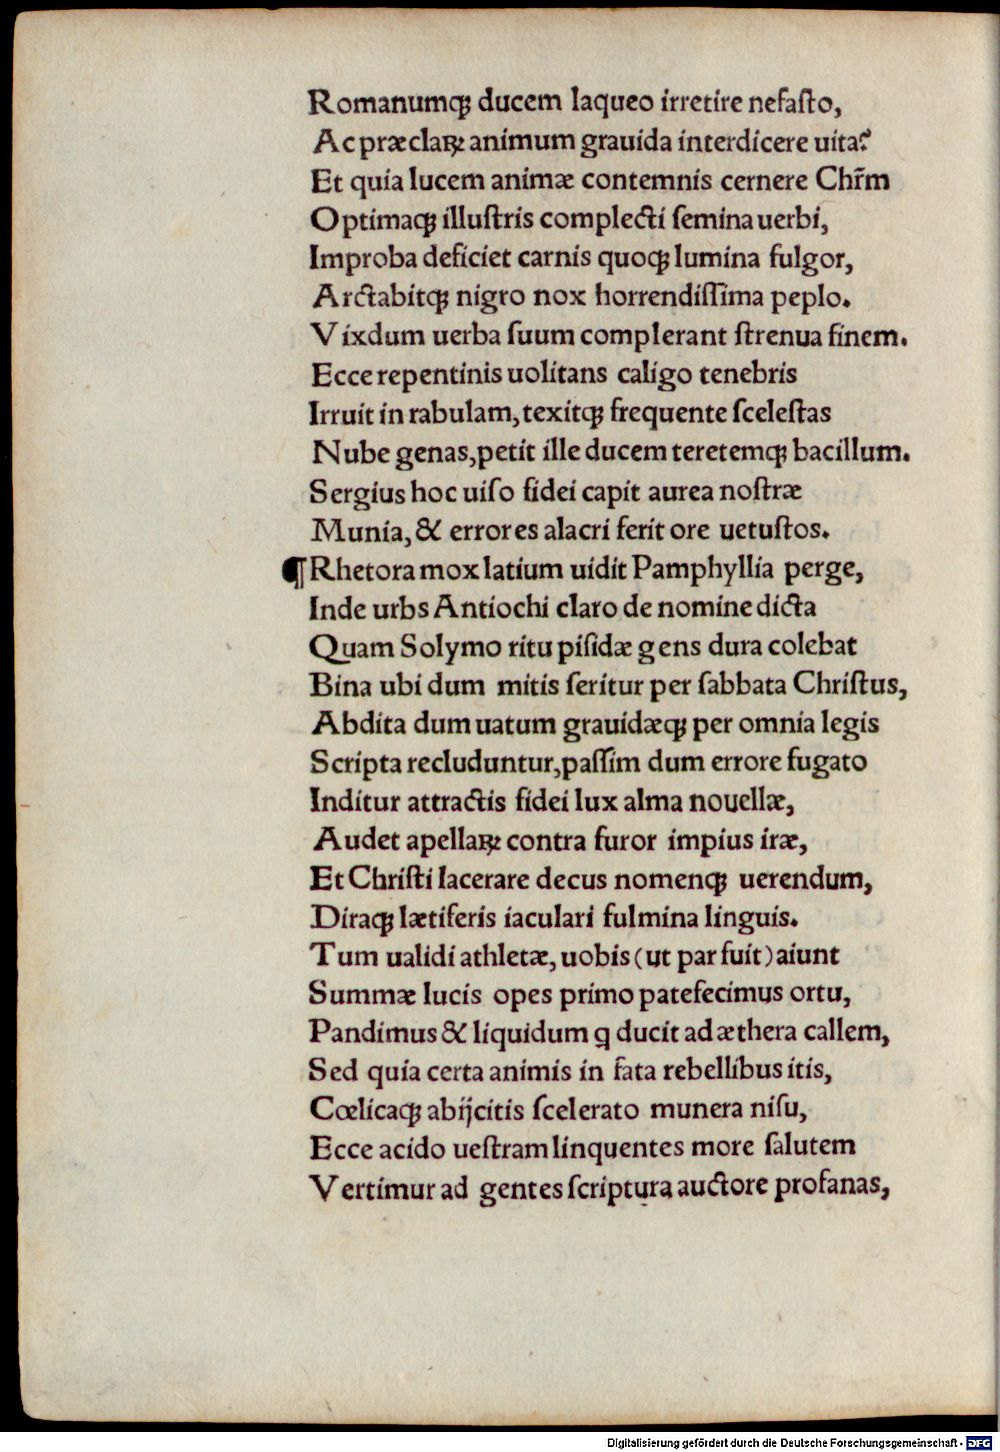 Romanumqꝫ ducem laqueo irretire nefaſto,
Ac præclaꝝ animum grauida interdicere uita?
Et quia lucem animæ contemnis cernere Chr̄m
Optimaqꝫ illuſtris complecti ſemina uerbi,
Improba deficiet carnis quoqꝫ lumina fulgor,
Arctabitqꝫ nigro nox horrendiſſima peplo.
Vixdum uerba ſuum complerant ſtrenua finem.
Ecce repentinis uolitans caligo tenebris
Irruit in rabulam, texitqꝫ frequente ſceleſtas
Nube genas,petit ille ducem teretemqꝫ bacillum.
Sergius hoc uiſo fidei capit aurea noſtræ
Munia, & errores alacri ferit ore uetuſtos.
¶Rhetora mox latium uidit Pamphyllia perge,
Inde urbs Antiochi claro de nomine dicta
Quam Solymo ritu piſidæ gens dura colebat
Bina ubi dum mitis ſeritur per ſabbata Chriſtus,
Abdita dum uatum grauidæqꝫ per omnia legis
Scripta recluduntur,paſſim dum errore fugato
Inditur attractis fidei lux alma nouellæ,
Audet apellaꝝ contra furor impius iræ,
Et Chriſti lacerare decus nomenqꝫ uerendum,
Diraqꝫ lætiferis iaculari fulmina linguis.
Tum ualidi athletæ, uobis (ut par fuit) aiunt
Summæ lucis opes primo patefecimus ortu,
Pandimus & liquidum q ducit ad æthera callem,
Sed quia certa animis in fata rebellibus itis,
Cœlicaqꝫ abijcitis ſcelerato munera niſu,
Ecce acido ueſtram linquentes more ſalutem
Vertimur ad gentes ſcriptura auctore profanas,
Digitalisierung gefördert durch die Deutsche Forschungsgemeinschaft - DFG